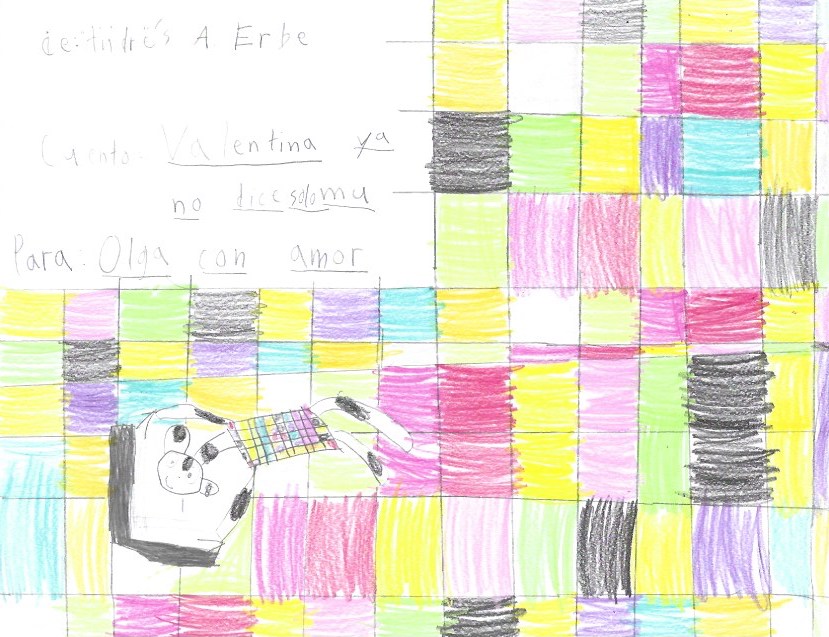 de: Andrés A. Erbe
Cuento - Valentina ya
no dice solo mu
Para: Olga con amor